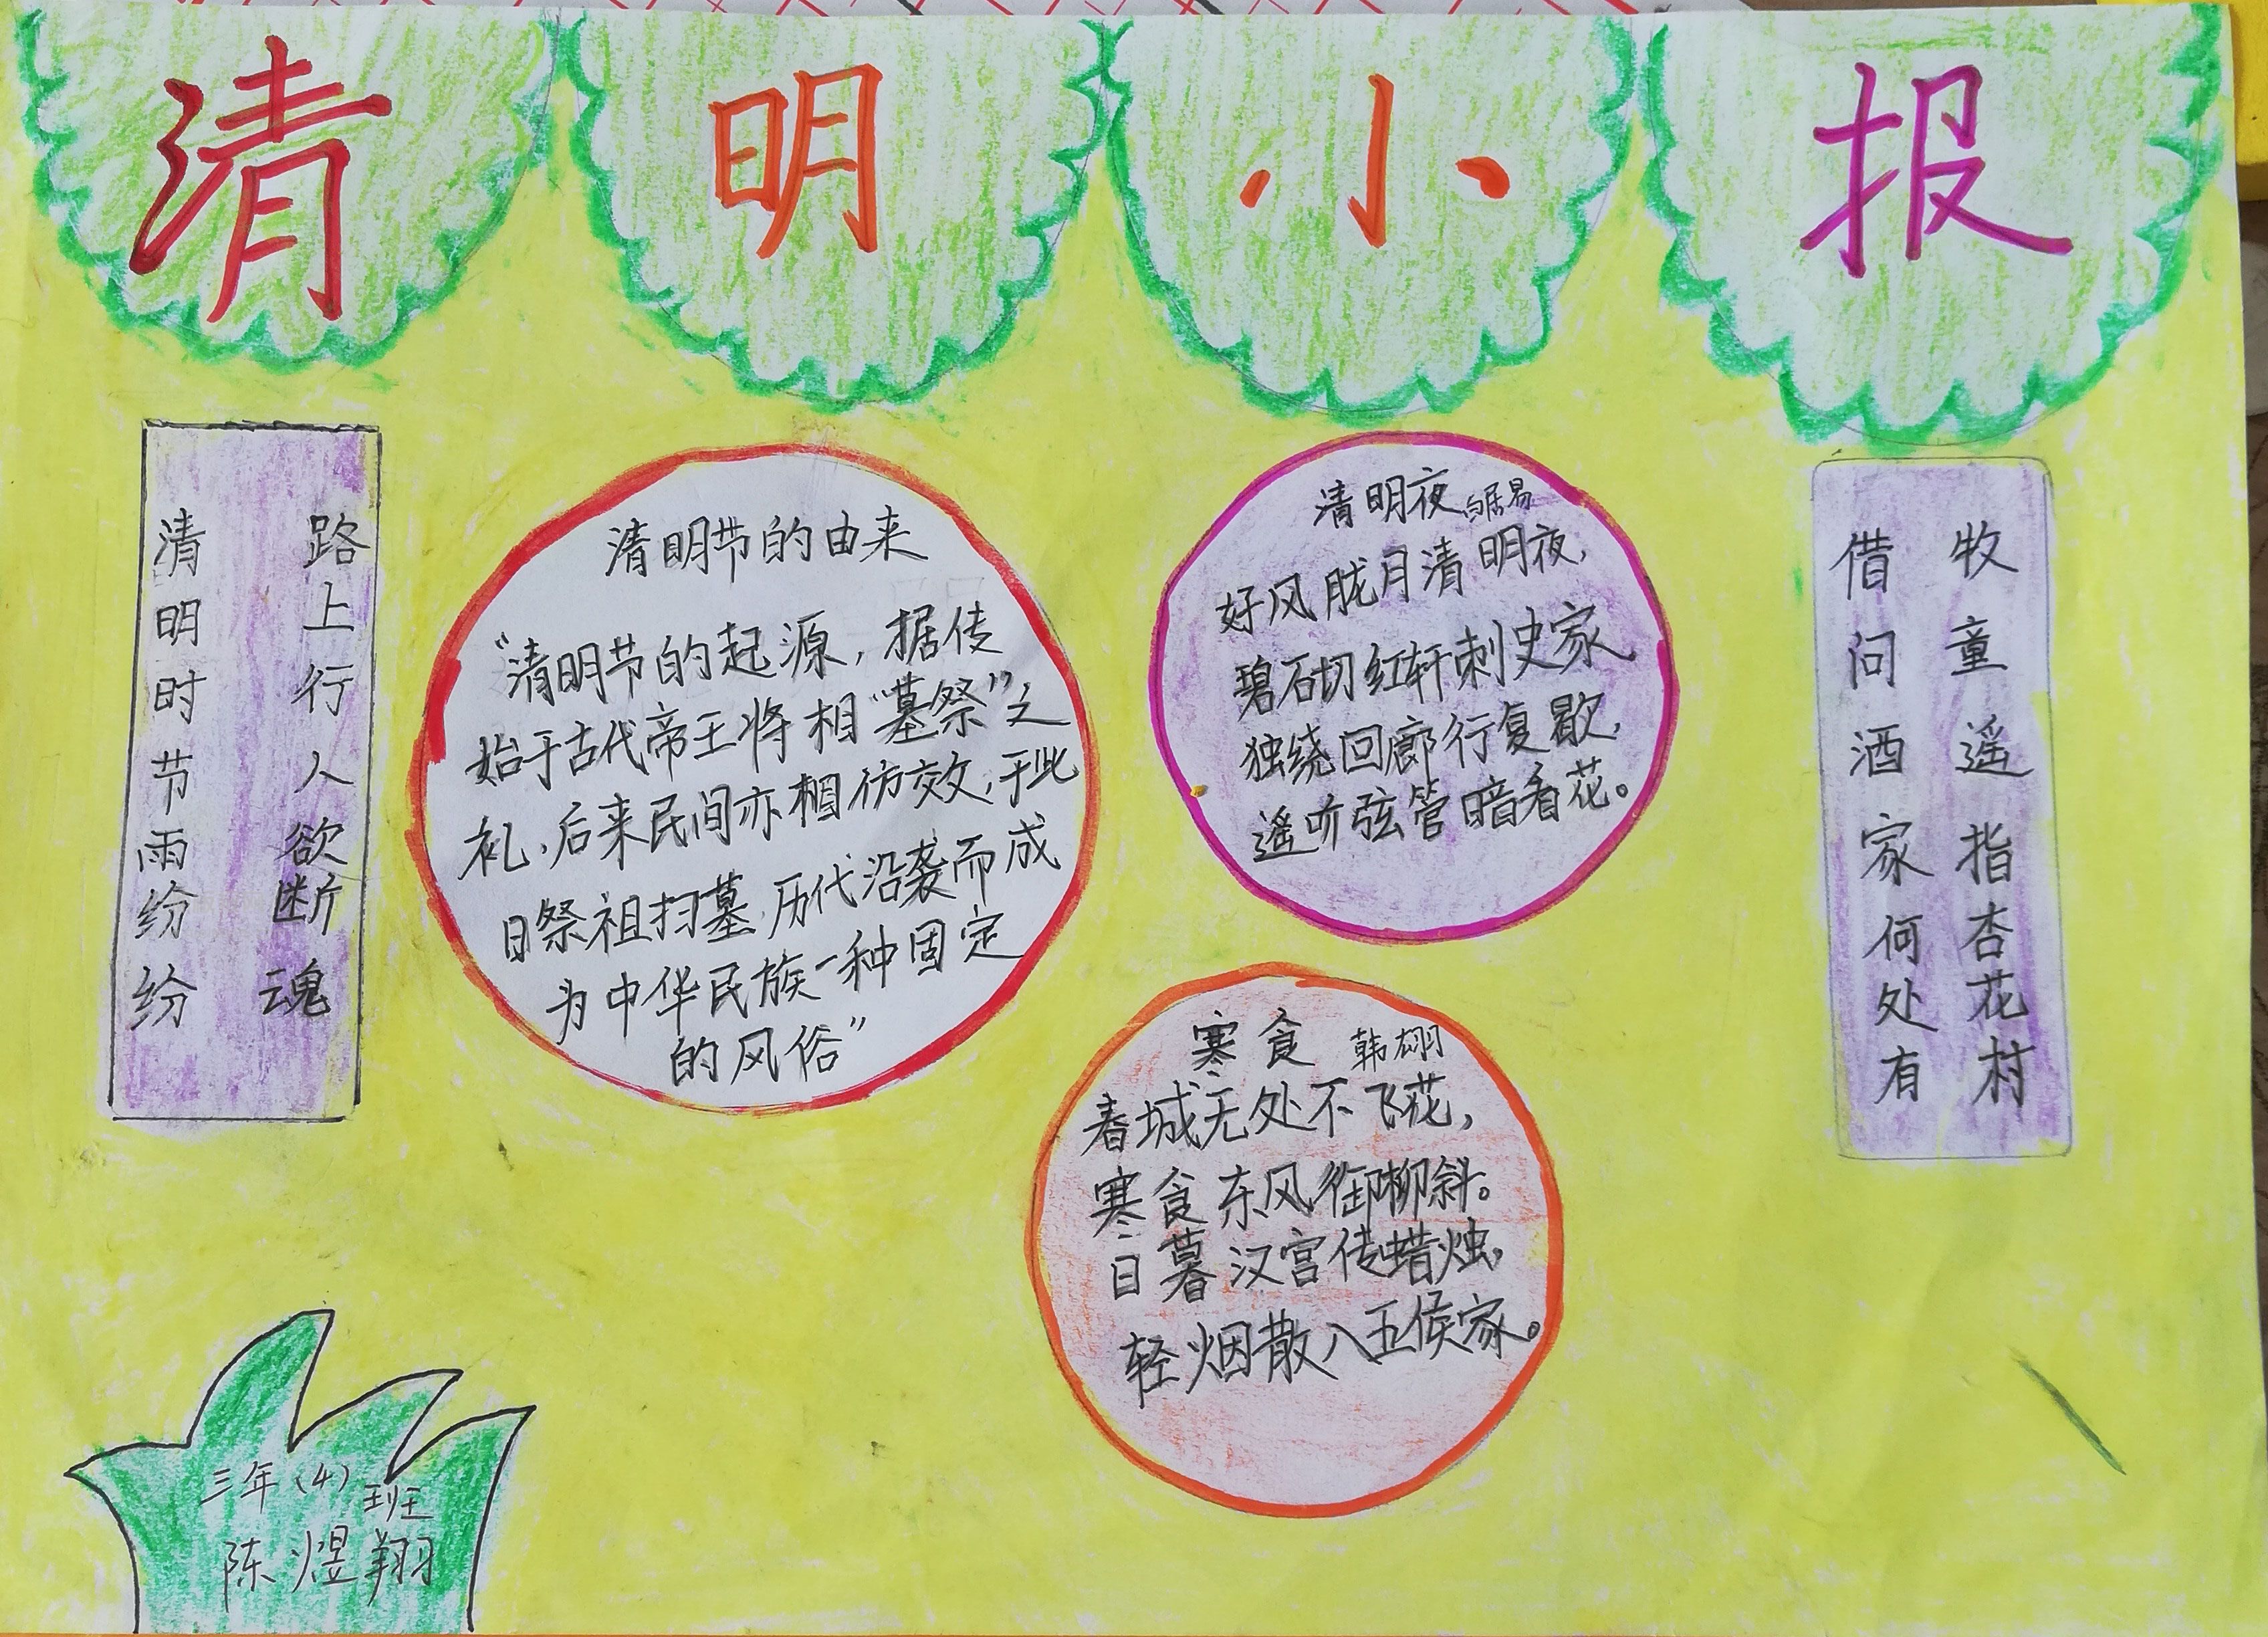 清明小报
清明时节雨纷纷
路上行人欲断魂
清明节的由来
“清明节的起源，据传
始于古代帝王将相“墓祭”之
礼，后来民间亦相仿效，于此
日祭祖扫墓，历代沿袭而成
为中华民族一种固定
的风俗”
清明夜 白居易
好风胧月清明夜，
碧石切红轩刺史家
独绕回廊行复歇，
遥听弦管暗看花。
寒食 韩翃
春城无处不飞花，
寒食东风御柳斜。
日暮汉宫传蜡烛，
轻烟散入五侯家。
借问酒家何处有
牧童遥指杏花村
三年（4）班
陈煜翔